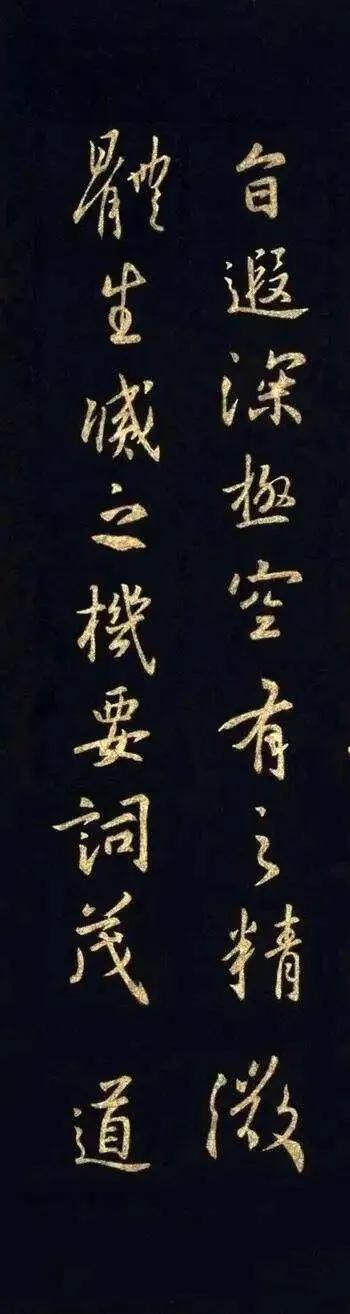 旨遐深極空有之精微
體生滅之機要詞茂道